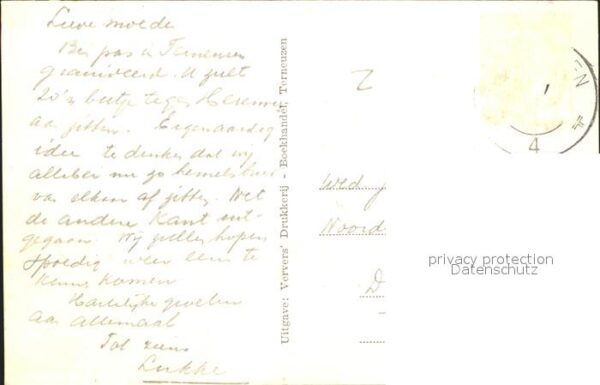 Lieve moeder
Ben pas in Terneuzen
gearriveerd. U ziet
zo'n beetje tegen
aan zitten. Eigenaardig
idee te denken dat wij
allebei nu zo hemelsbreed
van elkaar af zitten. Net
de andere kant uit-
gegaan. Wij zullen hopen
spoedig weer eens te
komen
Hartelijke groeten
aan allemaal
Tot ziens
Lukke
Uitgave: Ververs' Drukkerij - Boekhandel, Terneuzen
Z
4
Wed
Noord
D
privacy protection
Datenschutz